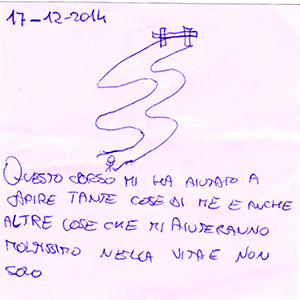 17-12-2014
QUESTO CORSO MI HA AIUTATO A
CAPIRE TANTE COSE DI ME E ANCHE
ALTRE COSE CHE MI AIUTERANNO
MOLTISSIMO NELLA VITA E NON
SOLO